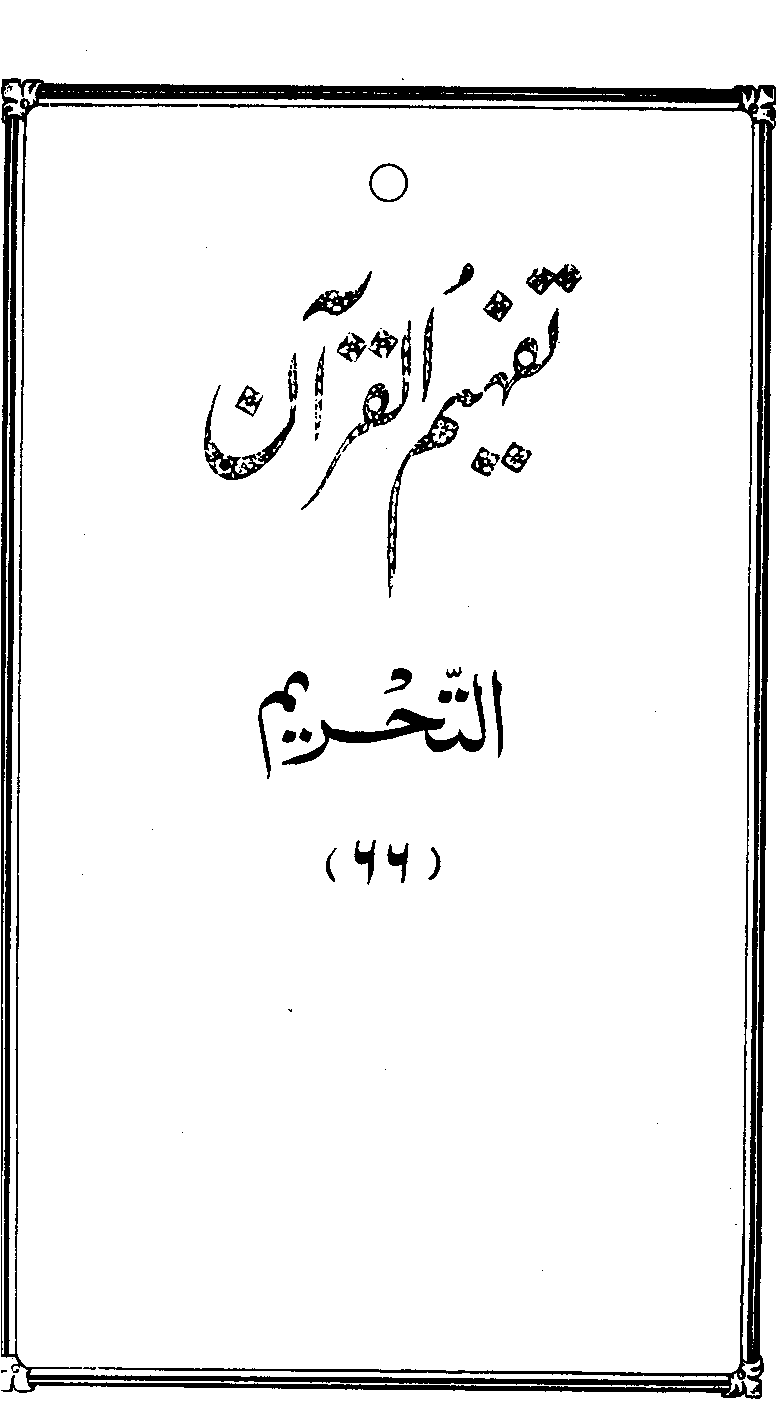 تفہیم القرآن
التّحریم
(۶۶)